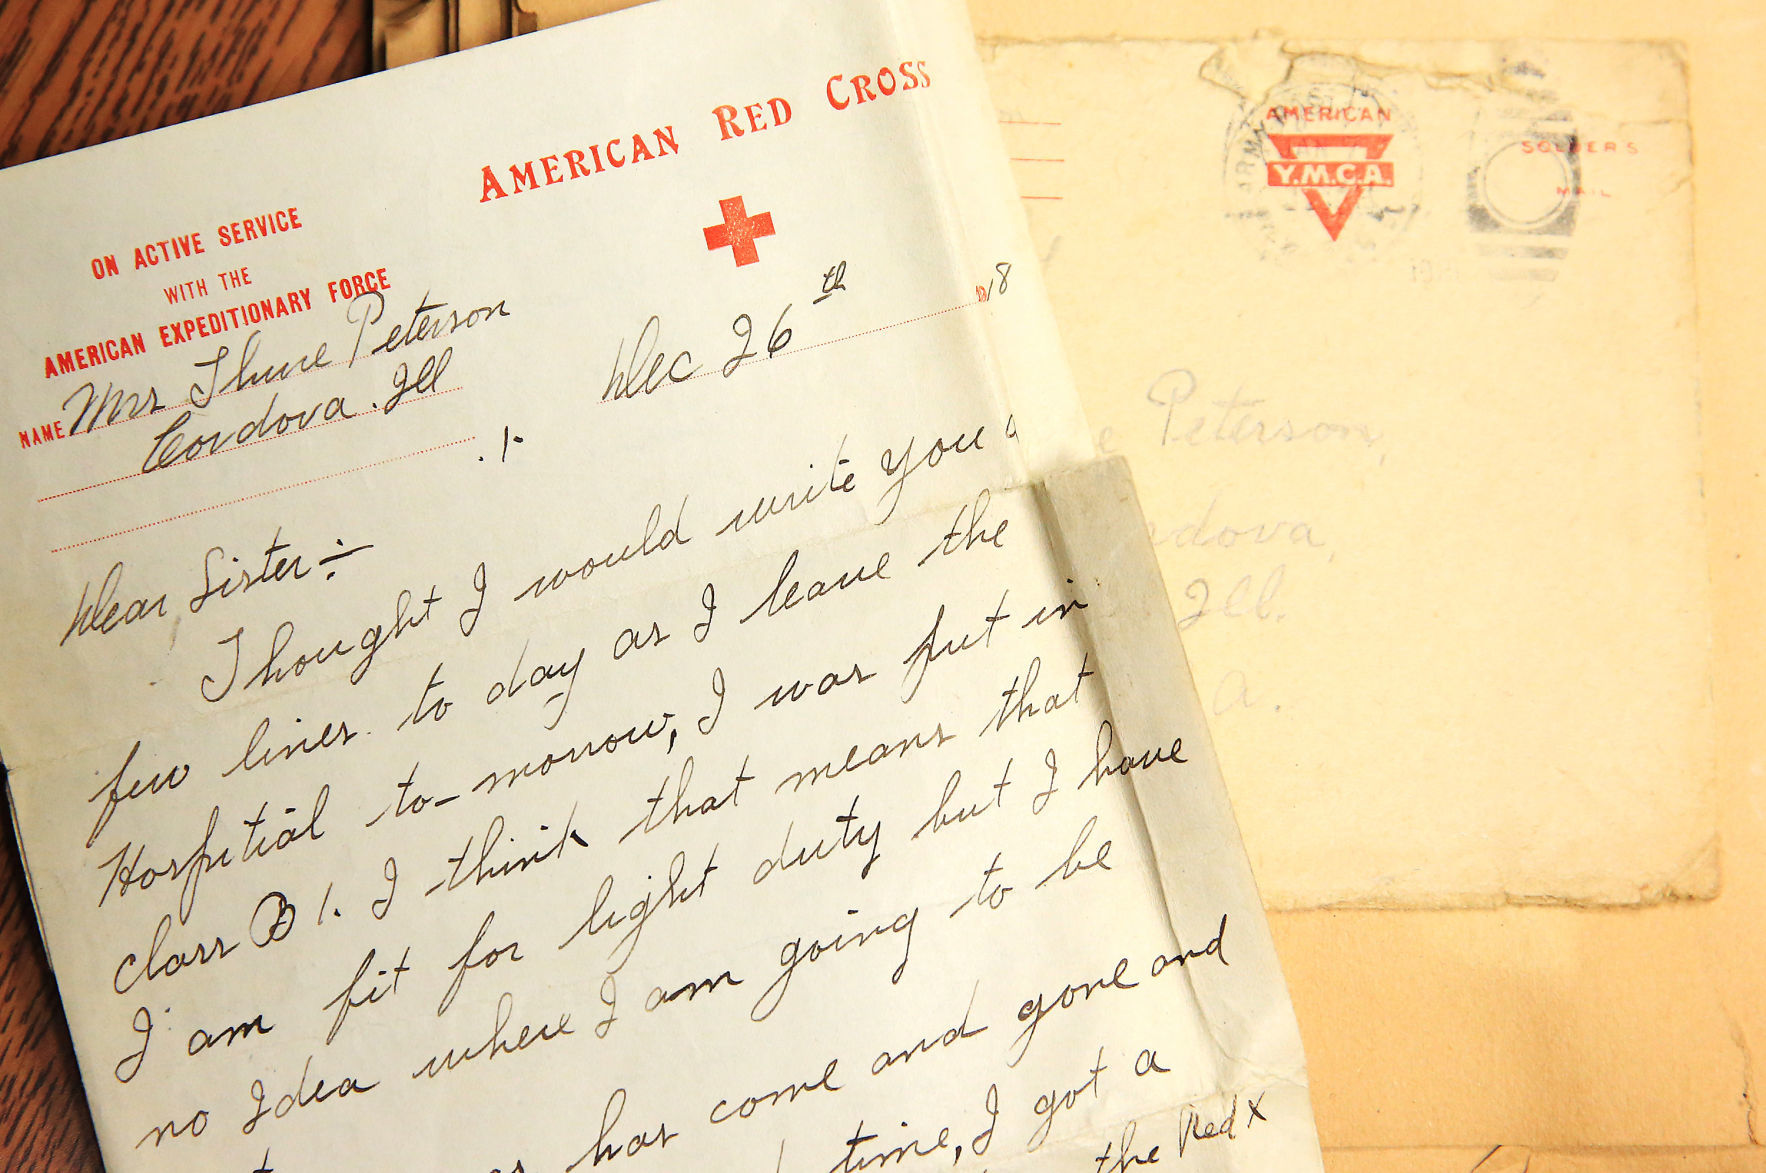 AMERICAN RED CROSS
ON ACTIVE SERVICE
WITH THE
AMERICAN EXPEDITIONARY FORCE
NAME Mrs Thure Peterson
Cordova. Ill
Dec 26th 1918
.1.
Dear Sister:-
Thought I would write you a
few lines to day as I leave the
Hospitial to-morrow, I was put in
Class B1. I think that means that
I am fit for light duty but I have
no Idea where I am going to be
has come and gone and
time, I got a
the Red X
AMERICAN
Y.M.C.A.
SOLDIERS
MAIL
ARMY POST
Peterson,
Ill.